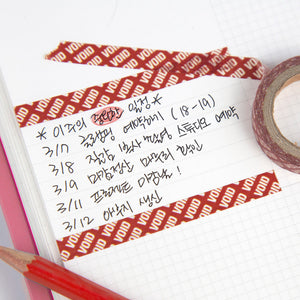 VOID VOID VOID VOID VOID VOID
* 이주의 일정 *
3/7 글램핑 예약하기 (18-19)
3/8 스튜디오 예약
3/9 마무리 확인
3/11 프로젝트 마감날!
3/12 아부지 생신
VOID VOID VOID VOID VOID VOID